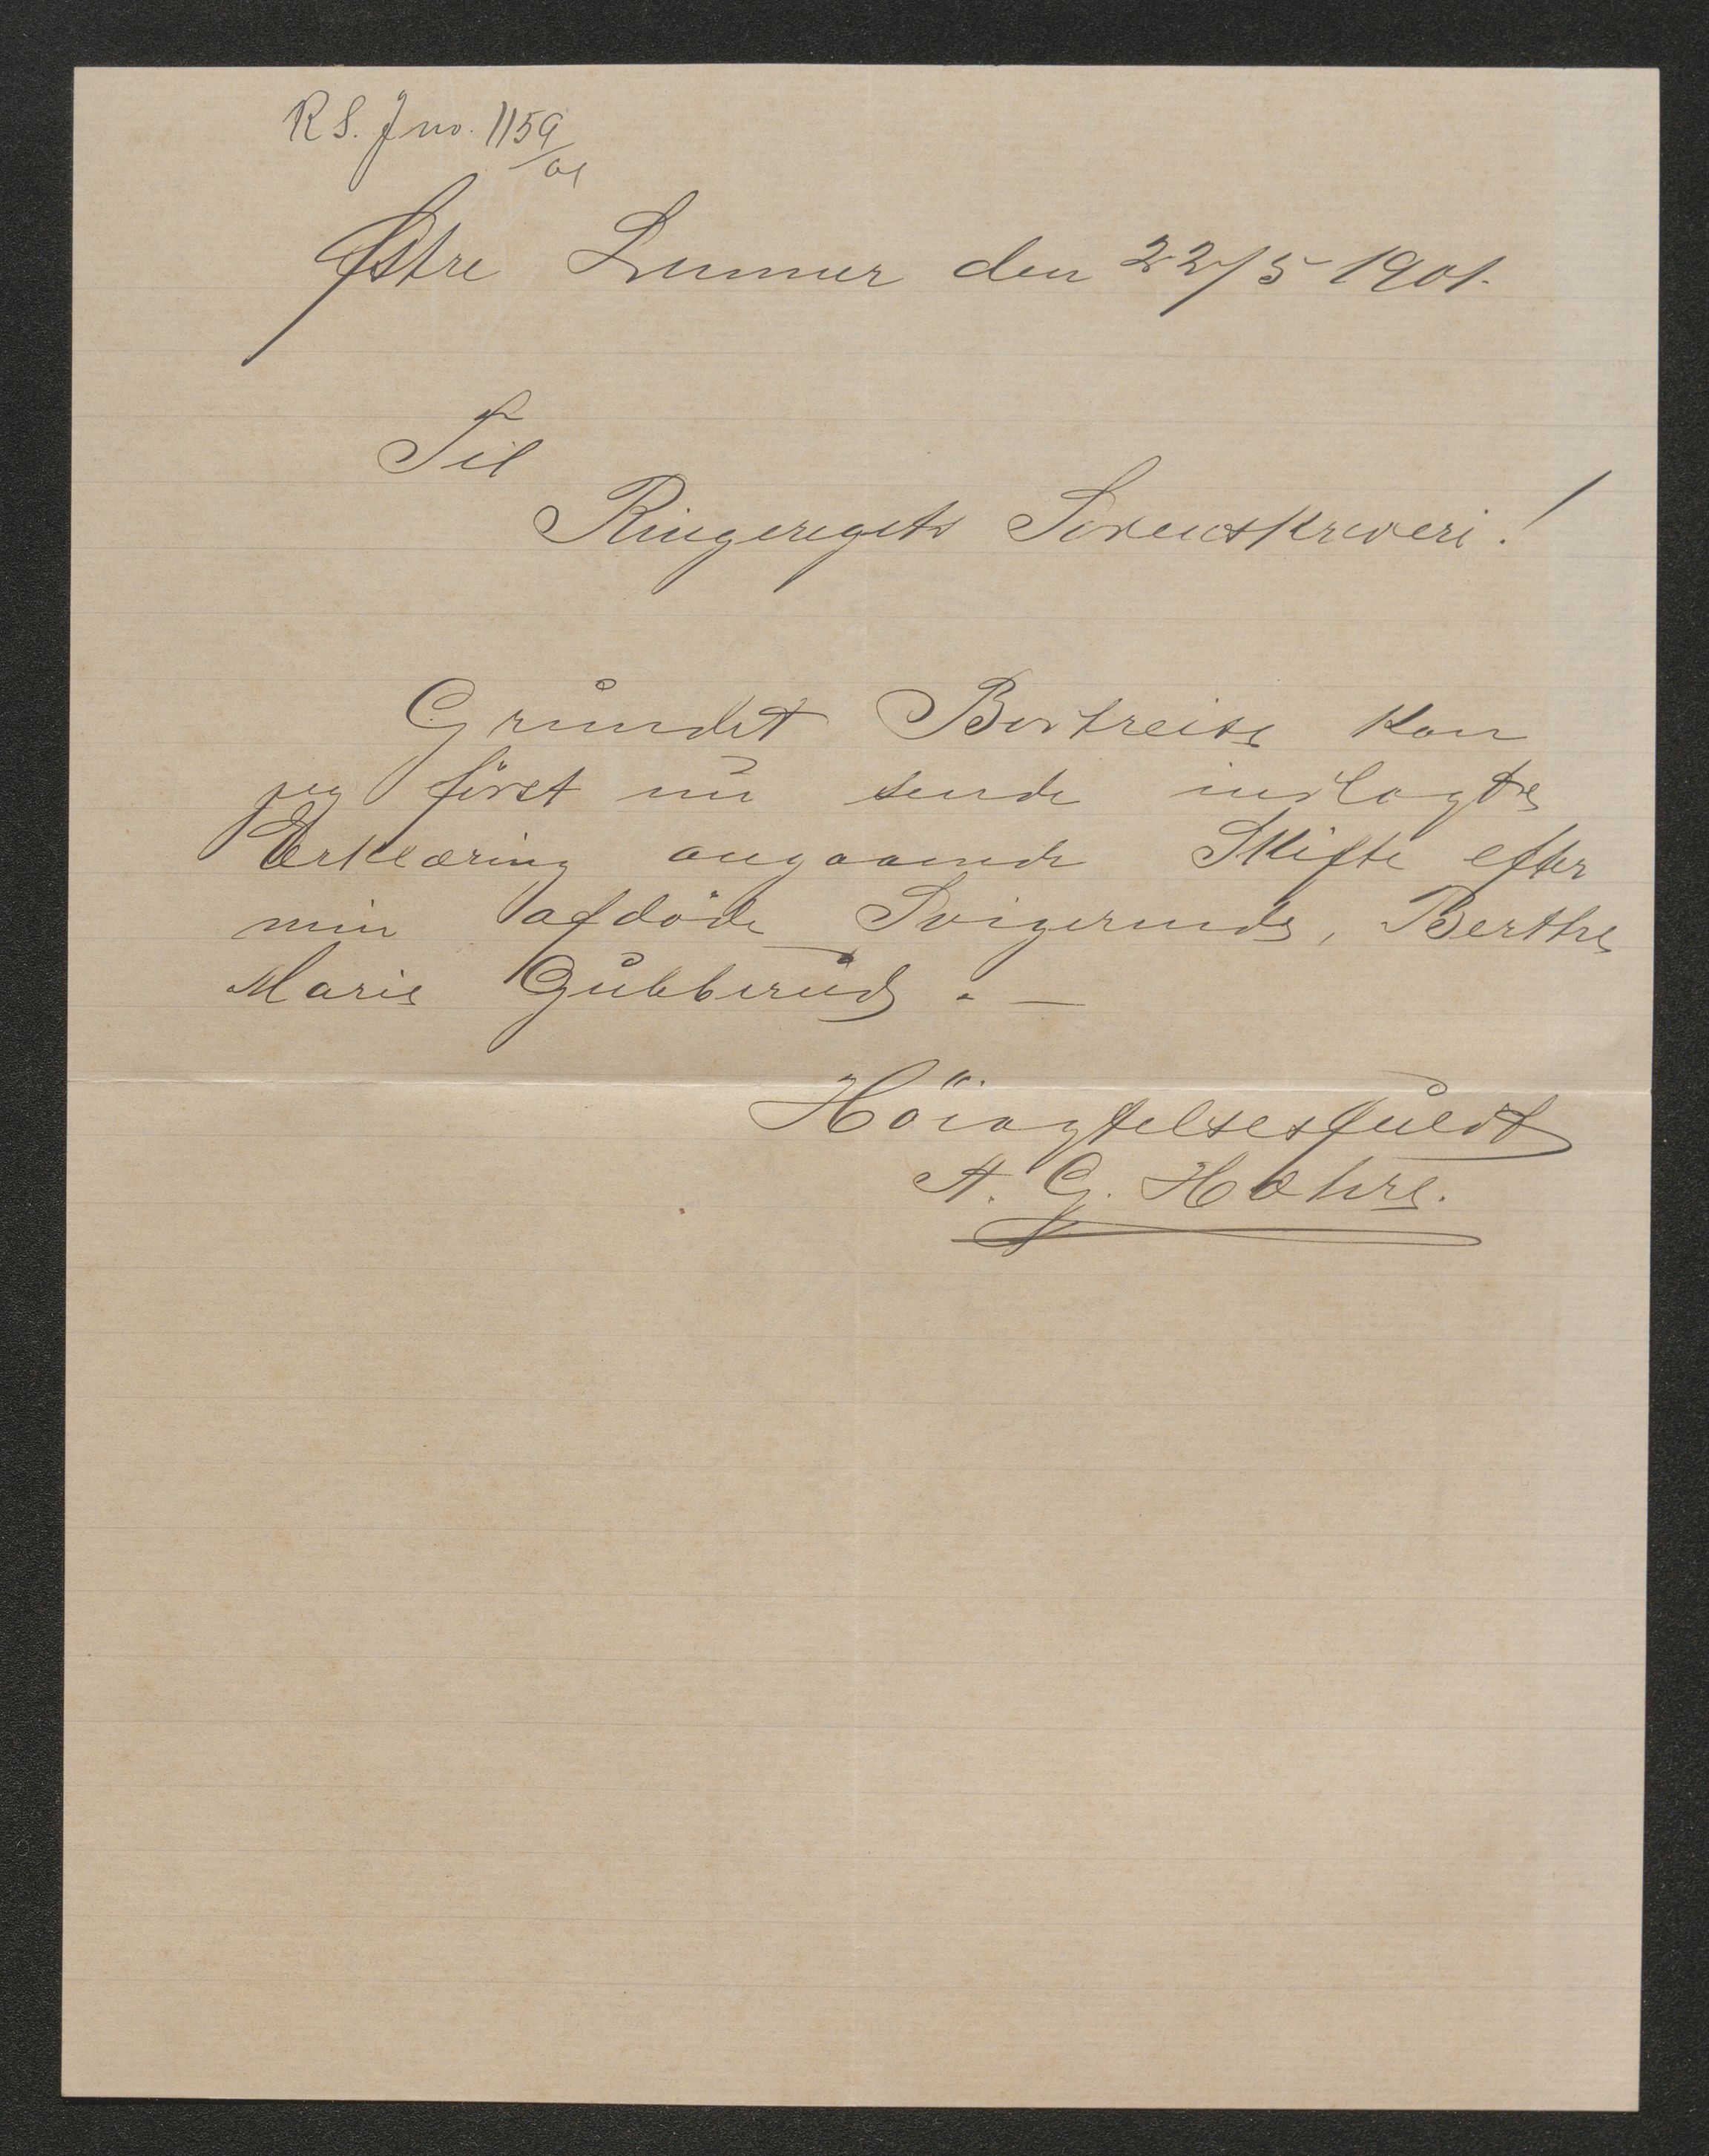 R S. J no. 1159/01
Østre Lunner den 22/5 1901.
Til
Ringeregets Sorenskriveri!
Grundet Bortreise kan
jeg først nu sende indlagte
Erklæring angaaende Skifte efter
min afdöde Svigerinde, Berthe
Marie Gubberud. —
Höiagtelsesfuldt
A. G. Hæhre.